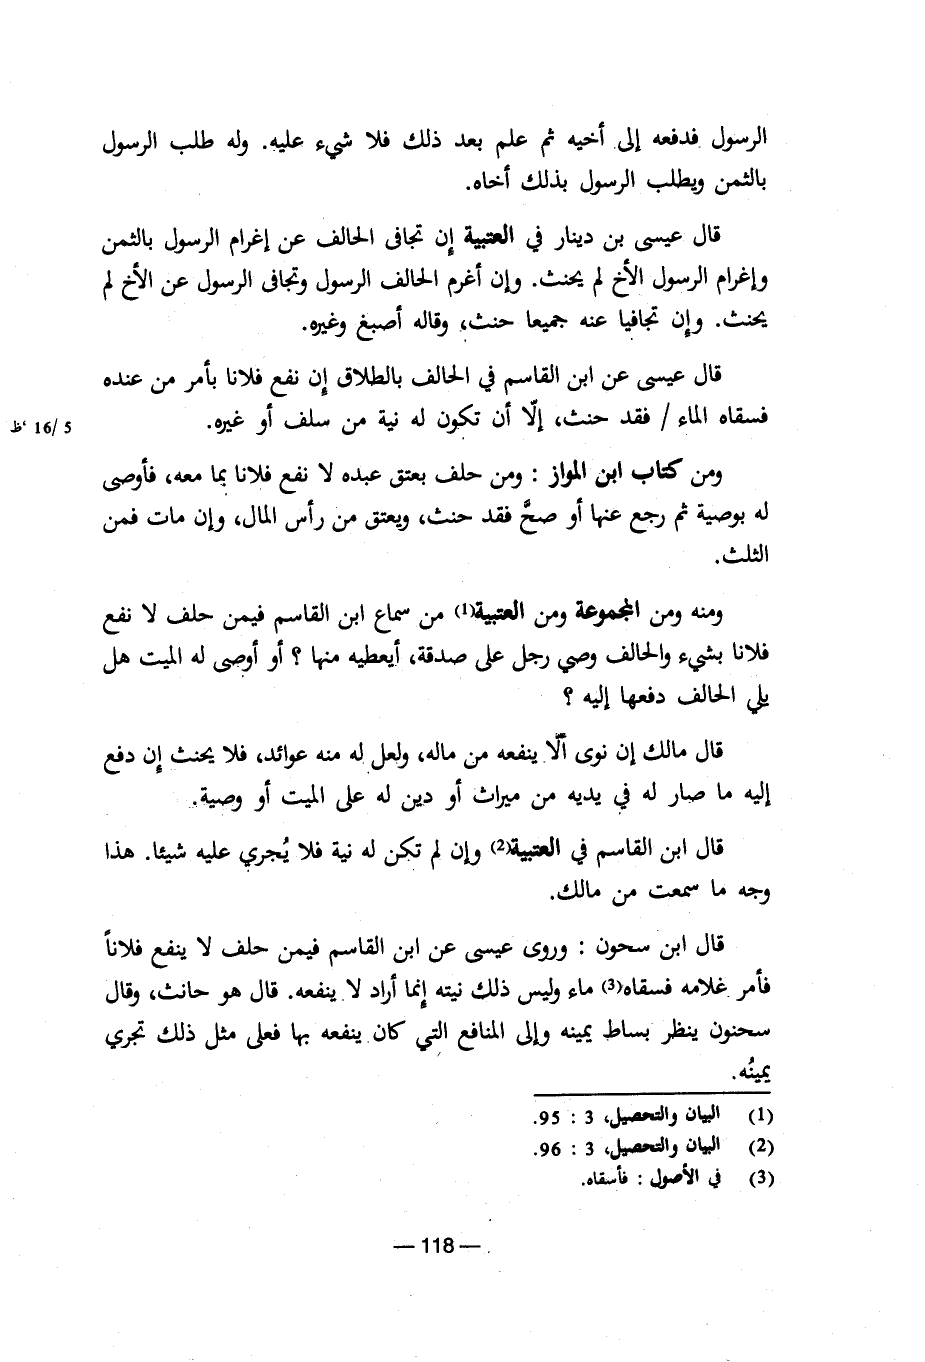 الرسول فدفعه إلى أخيه ثم علم بعد ذلك فلا شيء عليه. وله طلب الرسول
بالثمن ويطلب الرسول بذلك أخاه.
قال عيسى بن دينار في العتبية إن تجافى الحالف عن إغرام الرسول بالثمن
وإغرام الرسول الأخ لم يحنث. وإن أغرم الحالف الرسول وتجافى الرسول عن الأخ لم
يحنث. وإن تجافيا عنه جميعا حنث، وقاله أصبغ وغيره.
قال عيسى عن ابن القاسم في الحالف بالطلاق إن نفع فلانا بأمر من عنده
فسقاه الماء / فقد حنث، إلّا أن تكون له نية من سلف أو غيره.
5 /16 ،ظ
ومن كتاب ابن المواز : ومن حلف بعتق عبده لا نفع فلانا بما معه، فأوصى
له بوصية ثم رجع عنها أو صحَّ فقد حنث، ويعتق من رأس المال، وإن مات فمن
الثلث.
ومنه ومن المجموعة ومن العتبية(1) من سماع ابن القاسم فيمن حلف لا نفع
فلانا بشيء والحالف وصي رجل على صدقة، أيعطيه منها ؟ أو أوصى له الميت هل
يلي الحالف دفعها إليه ؟
قال مالك إن نوى ألّا ينفعه من ماله، ولعل له منه عوائد، فلا يحنث إن دفع
إليه ما صار له في يديه من ميراث أو دين له على الميت أو وصية.
قال ابن القاسم في العتبية(2) وإن لم تكن له نية فلا يُجري عليه شيئا. هذا
وجه ما سمعت من مالك.
قال ابن سحون : وروى عيسى عن ابن القاسم فيمن حلف لا ينفع فلاناً
فأمر غلامه فسقاه(3) ماء وليس ذلك نيته إنما أراد لا ينفعه. قال هو حانث، وقال
سحنون ينظر بساط يمينه وإلى المنافع التي كان ينفعه بها فعلى مثل ذلك تجري
يمينُه.
(1) البيان والتحصيل، 3 : 95.
(2) البيان والتحصيل، 3 : 96.
(3) في الأصول : فأسقاه.
— 118 —